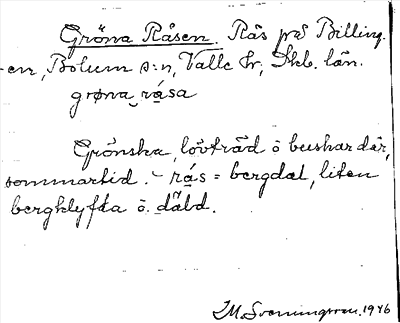 Gröna Råsen. Rås på Billing-
en, Bolum s:n, Valle hr, Skb. län.
grøna rása
Grönska, lövträd o buskar där,
sommartid. - rás = bergdal, liten
bergklyfta o. däld.
M. Sveningsson. 1946